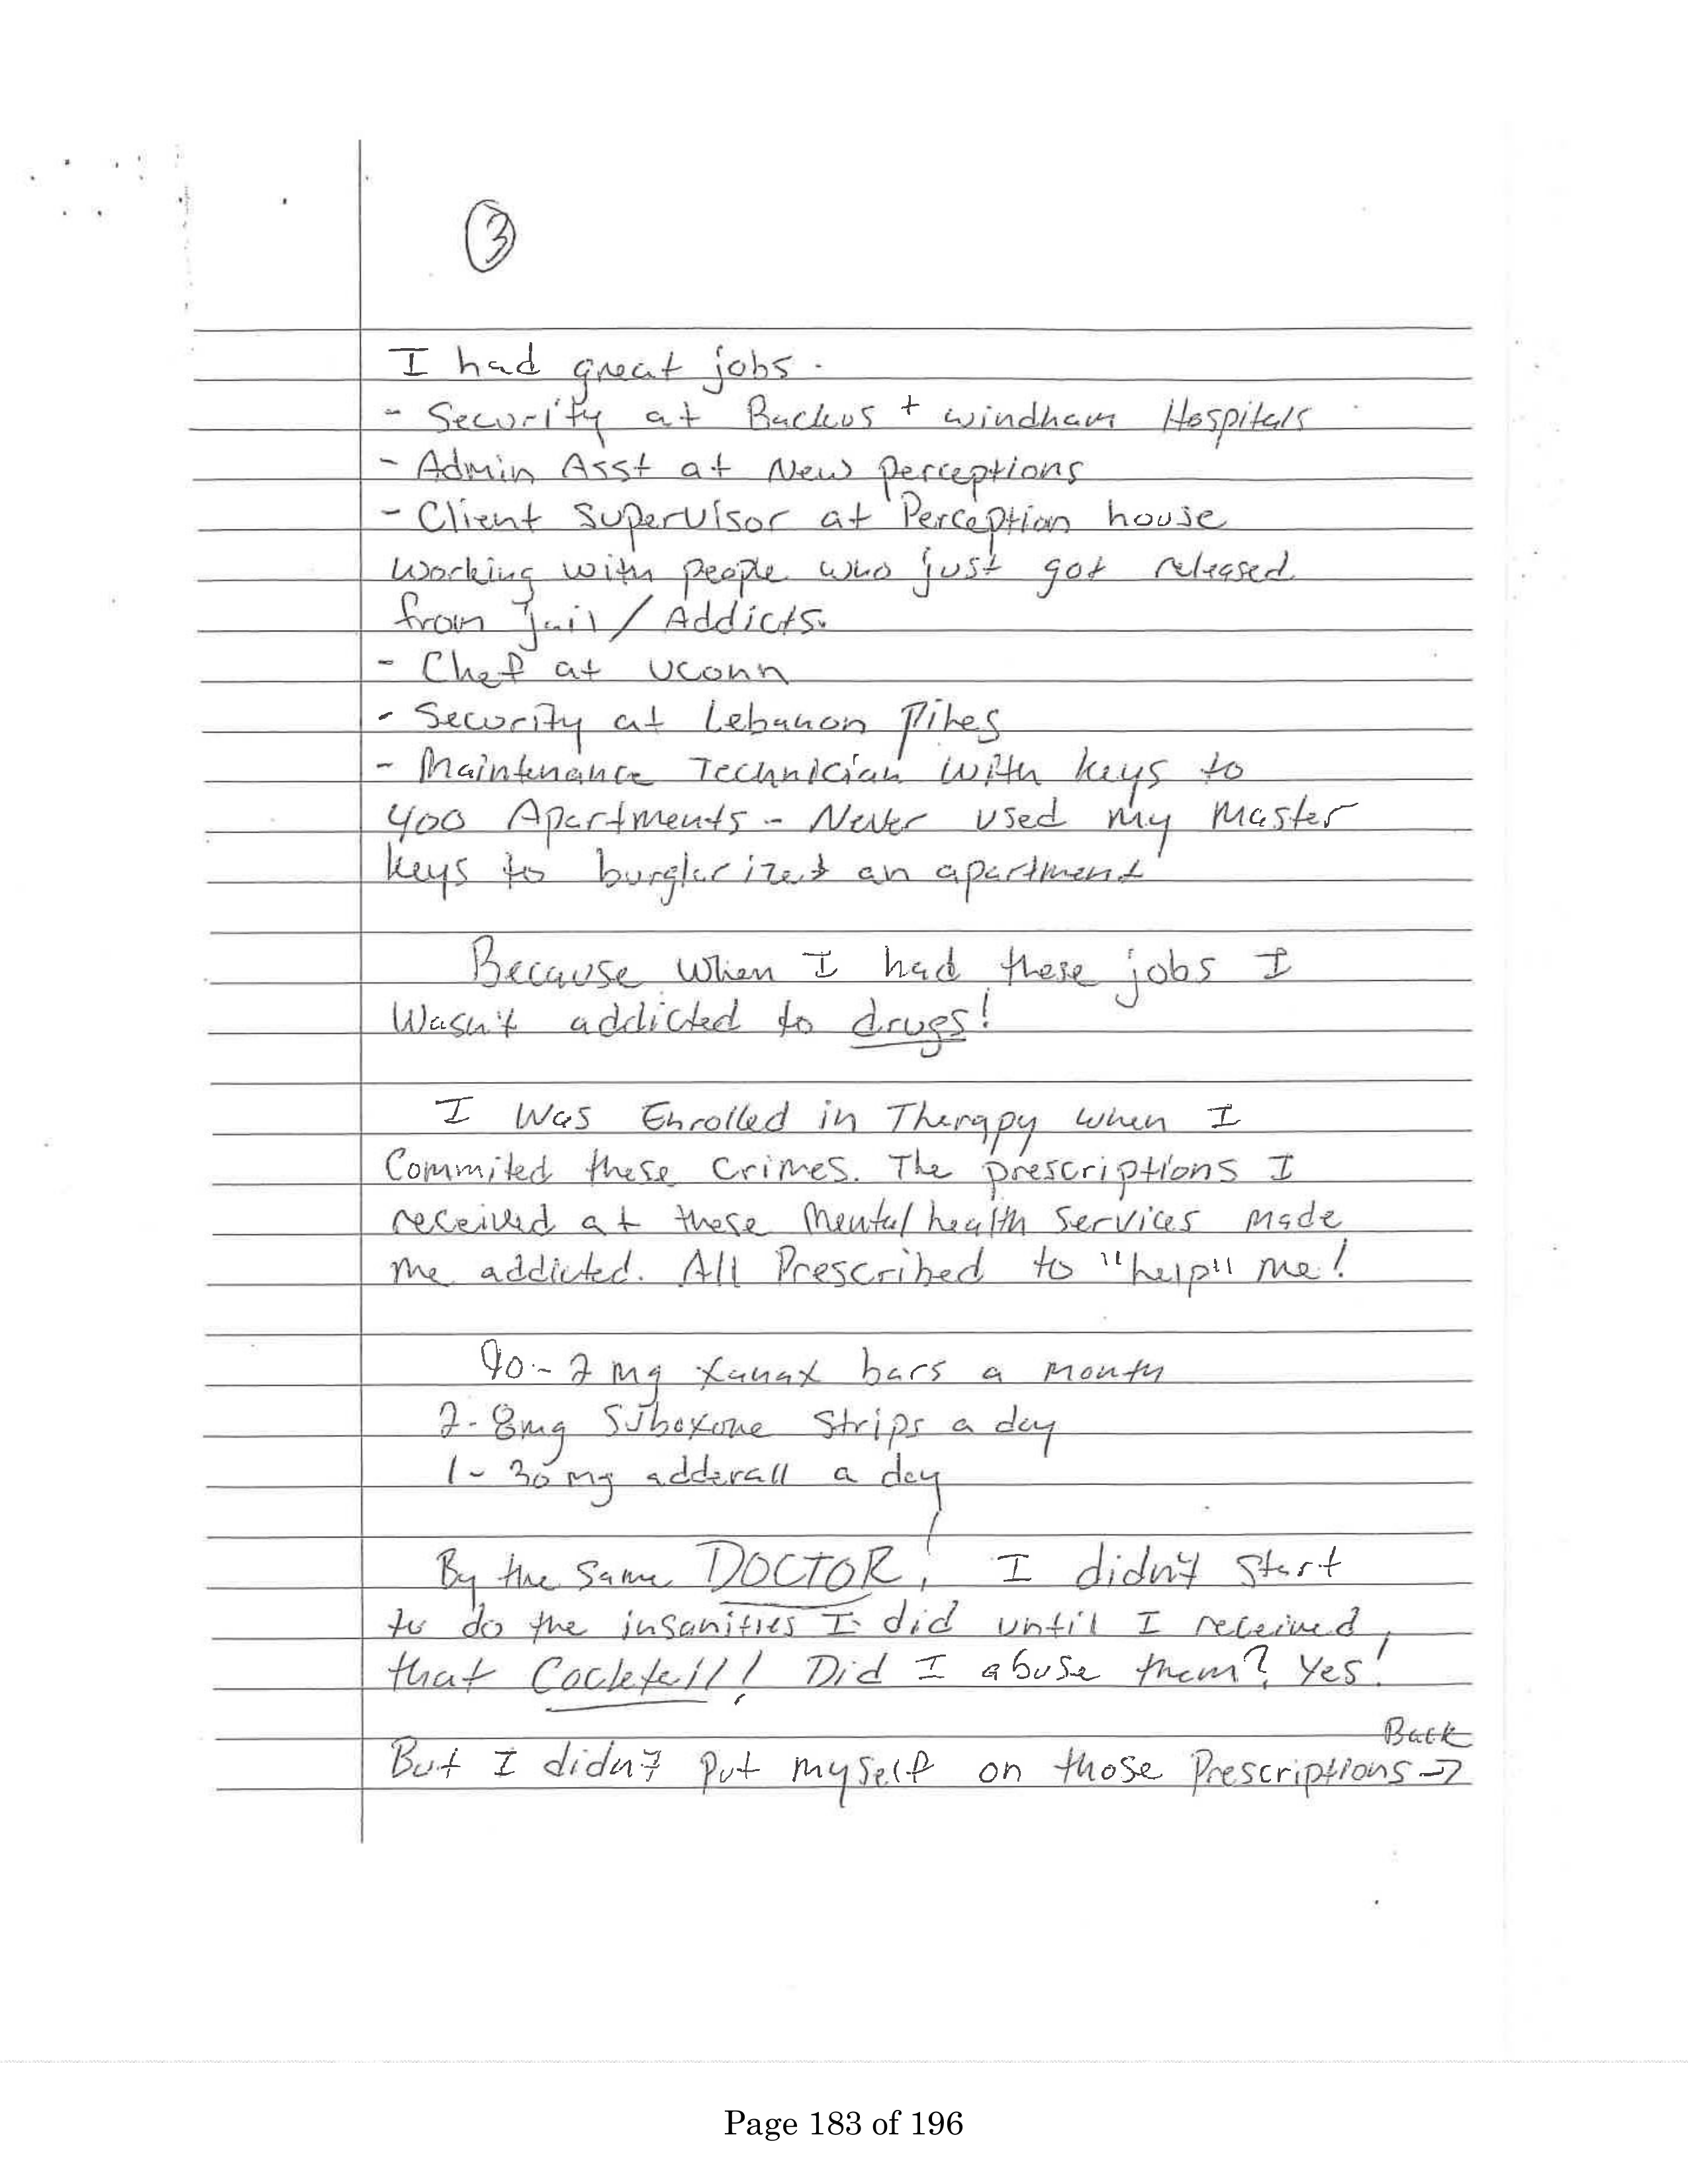 3
I had great jobs.
- Security at Backus + windham Hospitals
- Admin Asst at New perceptions
- Client Supervisor at Perception house
working with people who just got released
from Jail / Addicts.
- Chef at uconn
- Security at Lebanon Pines
- Maintenance Technician with keys to
400 Apartments - Never used my Master
keys to burglarized an apartment
Because when I had these jobs I
wasn't addicted to drugs!
I was Enrolled in Therapy when I
Commited these crimes. The prescriptions I
received at these Mental health services made
me addicted. All Prescribed to "help" me!
90 - 2 mg xanax bars a month
2 - 8mg Suboxone Strips a day
1 - 30 mg adderall a day
By the same DOCTOR! I didn't start
to do the insanities I did until I received
that Cocktail! Did I abuse them? Yes!
Back
But I didn't put myself on those Prescriptions →
Page 183 of 196